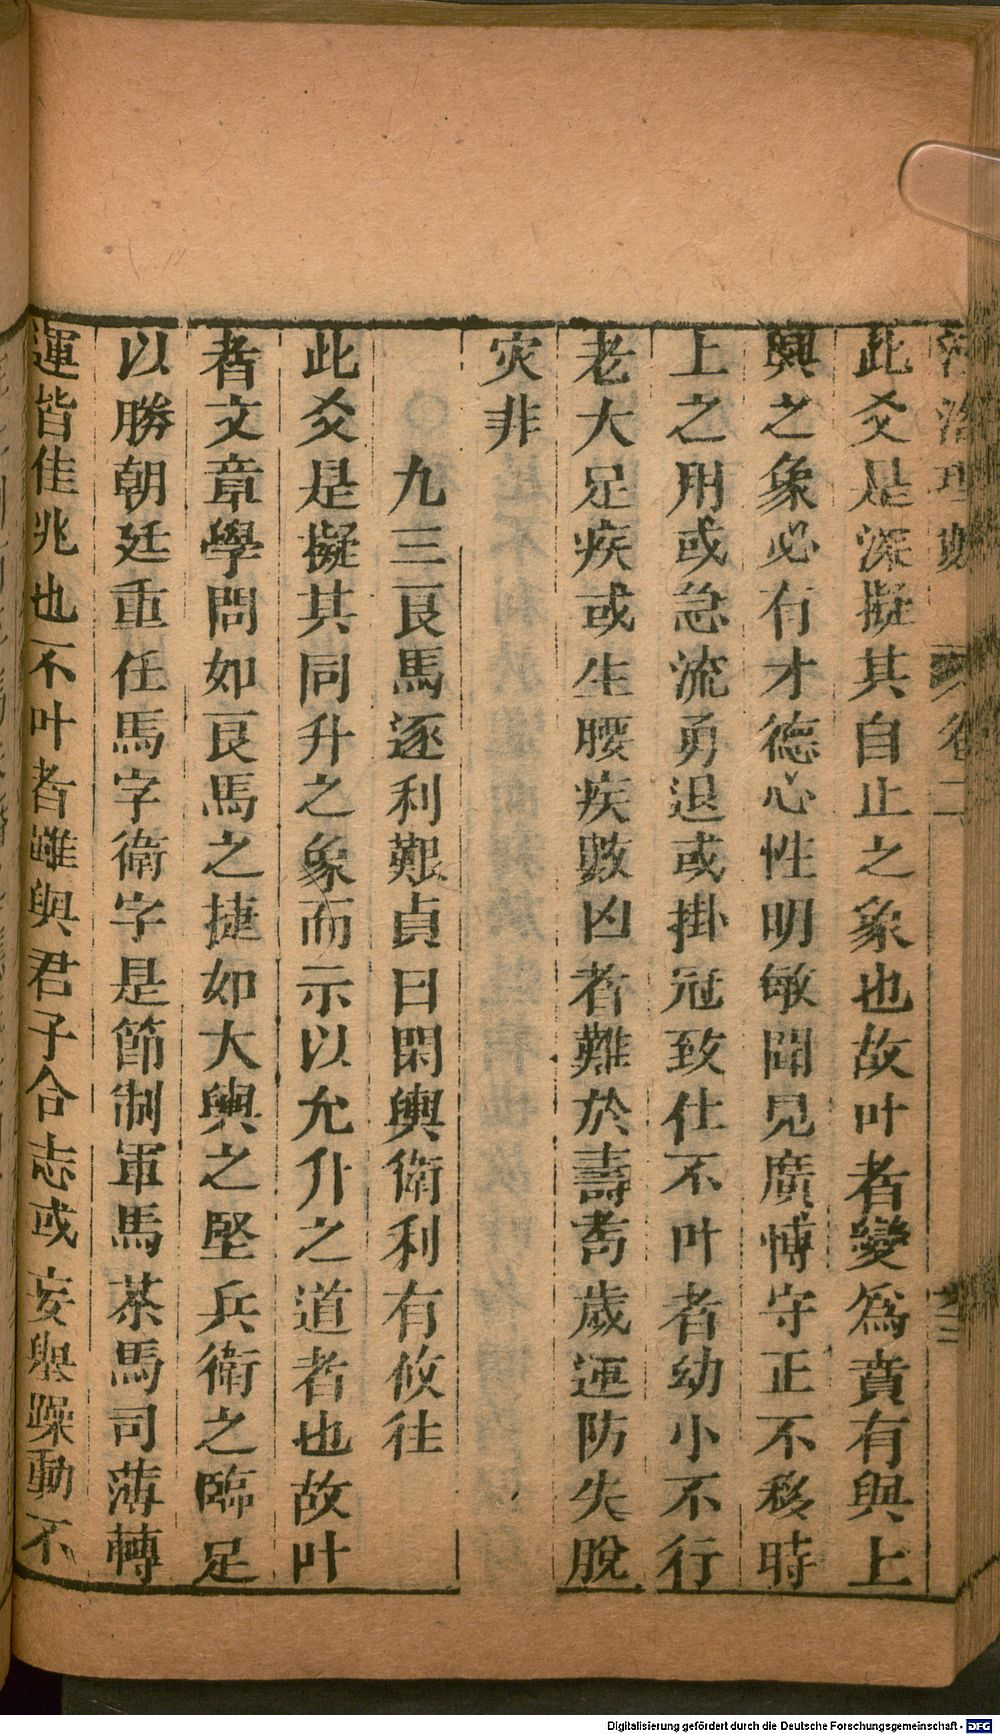 河洛理數 卷二
此爻是深擬其自止之象也故叶者變爲賁有與上
興之象必有才德心性明敏聞見廣博守正不移時
上之用或急流勇退或掛冠致仕不叶者幼小不行
老大足疾或生腰疾數凶者難於壽耇歲運防失脫
灾非
九三良馬逐利艱貞曰閑輿衛利有攸往
此爻是擬其同升之象而示以允升之道者也故叶
者文章學問如良馬之捷如大輿之堅兵衛之臨足
以勝朝廷重任馬字衛字是節制軍馬茶馬司薄轉
運皆佳兆也不叶者雖與君子合志或妄與躁動不
Digitalisierung gefördert durch die Deutsche Forschungsgemeinschaft - DFG